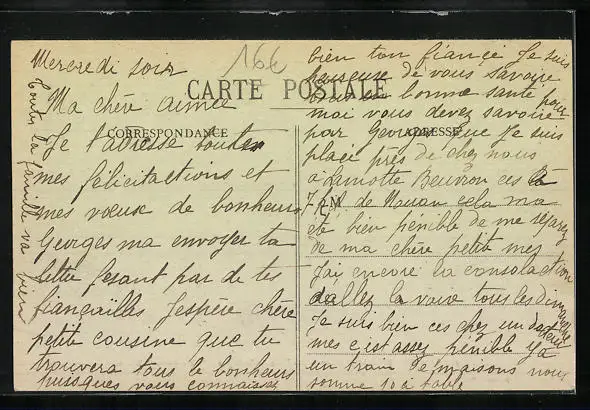 166
CARTE POSTALE
CORRESPONDANCE
ADRESSE
Mercredi soir
Ma chère aimée
Je t'adresse toutes
mes félicitactions et
mes vœux de bonheurs
Georges ma envoyer ta
lettre fesant par de tes
fiançailles J'espère chère
petite cousine que tu
trouvera tous le bonheurs
puisques vous connaissez
bien ton fiancé Je suis
heureuse de vous savoire
tous en bonne santé pour
moi vous devez savoire
par Georges que je suis
placé près de chez nous
a Lamotte Beuvron ces la
7 K.M. de Nouan cela ma
été bien pénible de me séparez
de ma chère petite mez
j'ai encore la consolaction
d'allez la voire tous les dimanche
Je suis bien ces chez un docteur
mes c'est assez pénible ya
un train de maisons nous
somme 10 à table
Toute la famille va bien